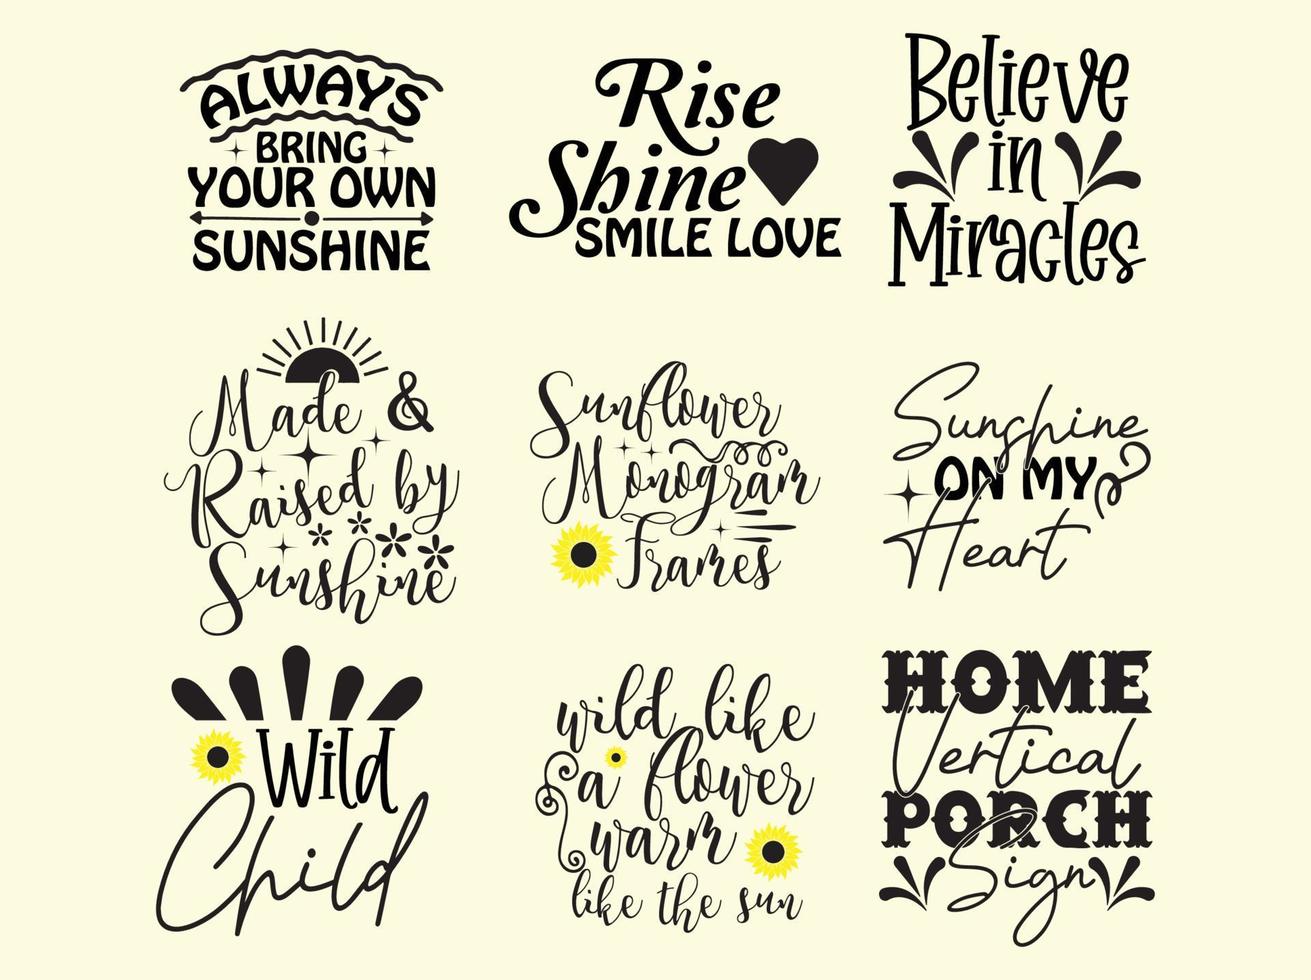 ALWAYS
BRING
YOUR OWN
SUNSHINE
Rise
Shine
SMILE LOVE
Believe
in
Miracles
Made &
Raised by
Sunshine
Sunflower
Monogram
Frames
Sunshine
ON MY
Heart
Wild
Child
wild like
a flower
warm
like the sun
HOME
Vertical
PORCH
Sign